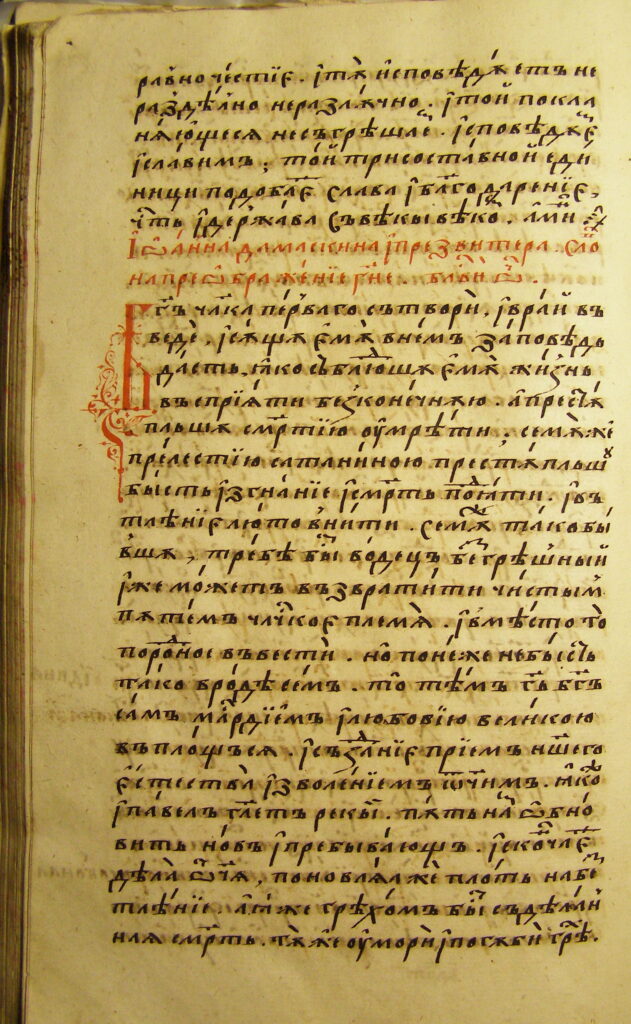 равночестїе. їтѫ исповѣдѫетъ не
раздѣлно неразлѫчно. їтой покла
нѧющесѧ несъгрѣшае. їсповѣдѫе
їславимъ; той трисоставной еди
ници подобае слава їблгодаренїе,
чть їдержава съвѣкы вѣкѡ. амин
Їѡанна дамаскина їпрезвитера. сло
напреѡбраженїе гне. блвен ѿ.
гъ члка перваго сътвори. їврай въ
веде. їсѫщѫ емѫ внемъ заповѣдь
дасть. ꙗко съблюшѫ емѫ жизнь
въспрїѧти безконечнѫю. апрестѫ
пльшѫ смртїю оумрѣти. семѫже
прелестїю сатаниною престѫпльшꙋ
бысть їзгнанїе їсмрть поѧти. ївъ
тлѣнїе люто внити. семѫ тако бы
вшѫ, требѣ бы водецъ безгрѣшный
їже можетъ възвратити чистым
пѫтемъ члчкое племѧ. їѵмѣсто то
породное въвести. но понеже небысть
тако бродѣ семъ. то тѣмъ гь бгъ
самъ млрдїемъ їлюбовїю великою
въплощьсѧ. їсъзданїе прїемъ ншего
естества їзволенїемъ ѿчимъ. ꙗко
їпавелъ глеть рекы. пѫть на ѡбно
вить новъ їпребывающъ. їскочае
дѣла ѿчїѧ, поновлѧѧже плоть набе
тлѣнїе. аѧже грѣхомъ бы съдѣлан
наѧ смрть. тѫже оумори їпогѫби грѣ.